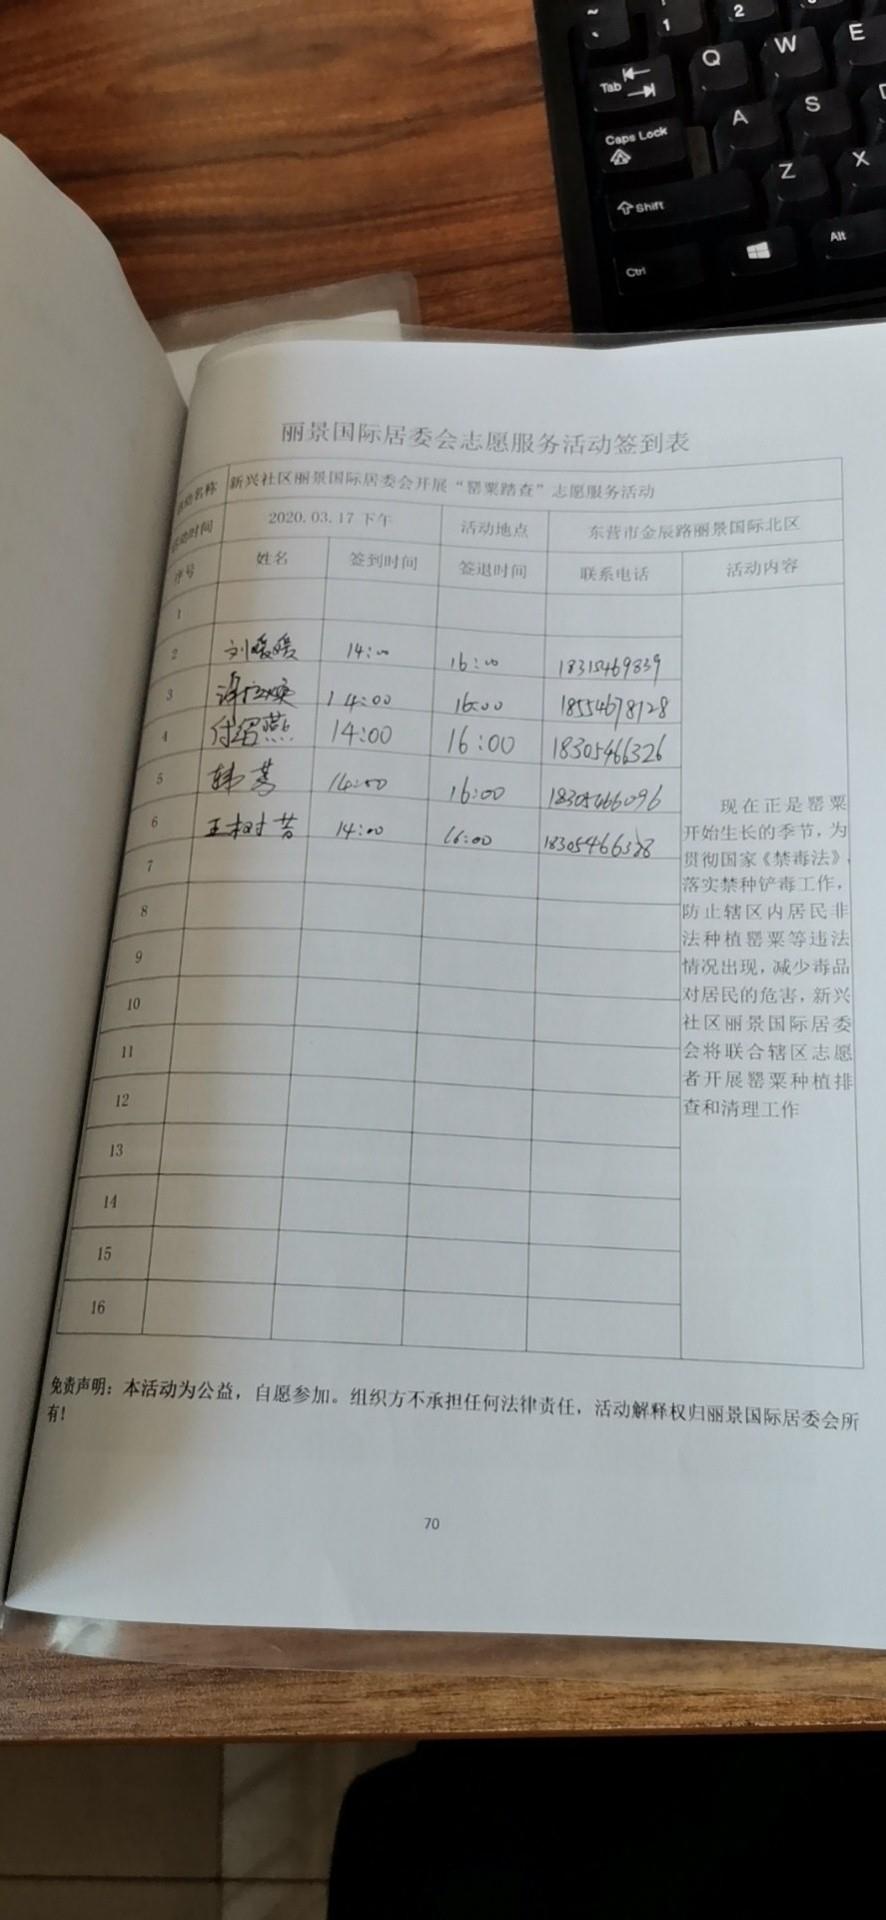 ~
`
!
1
2
Tab
Q
W
E
Caps Lock
A
S
Shift
Z
X
Ctrl
Alt
丽景国际居委会志愿服务活动签到表
活动名称 新兴社区丽景国际居委会开展“罂粟踏查”志愿服务活动
活动时间 2020.03.17下午 活动地点 东营市金辰路丽景国际北区
序号 姓名 签到时间 签退时间 联系电话 活动内容
1
2 刘媛媛 14:00 16:00 18315469839
3 14:00 16:00 18554678128
4 付绍燕 14:00 16:00 18305466326
5 韩 14:00 16:00 18305466096
6 王树 14:00 16:00
7
8
9
10
11
12
13
14
15
16
现在正是罂粟
开始生长的季节，为
贯彻国家《禁毒法》，
落实禁种铲毒工作，
防止辖区内居民非
法种植罂粟等违法
情况出现，减少毒品
对居民的危害，新兴
社区丽景国际居委
会将联合辖区志愿
者开展罂粟种植排
查和清理工作
免责声明：本活动为公益，自愿参加。组织方不承担任何法律责任，活动解释权归丽景国际居委会所
有！
70